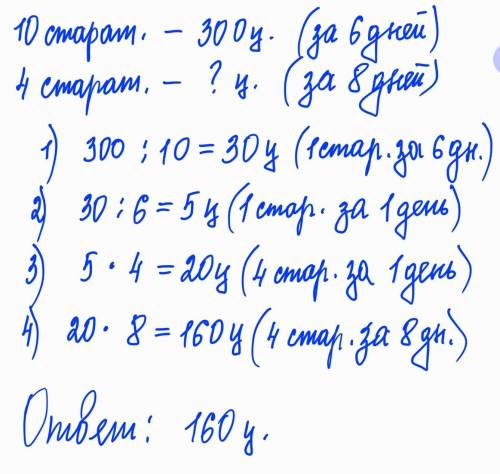 10 старат. – 300ц. (за 6 дней)
4 старат. – ? ц. (за 8 дней)
1) 300 : 10 = 30ц (1 стар. за 6 дн.)
2) 30 : 6 = 5ц (1 стар. за 1 день)
3) 5 · 4 = 20ц (4 стар. за 1 день)
4) 20 · 8 = 160ц (4 стар. за 8 дн.)
Ответ: 160 ц.